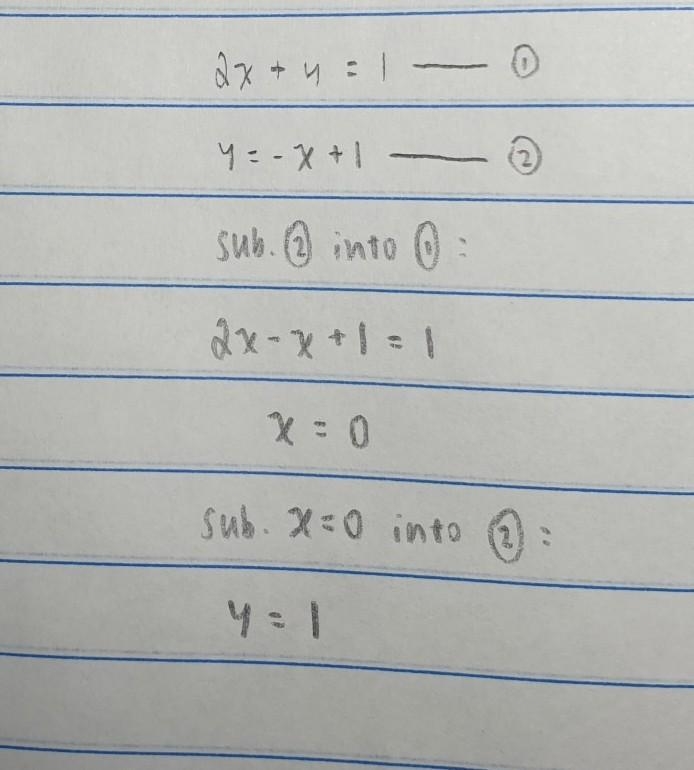 2x + y = 1 —— ①
y = - x + 1 —— ②
sub. ② into ① :
2x - x + 1 = 1
x = 0
sub. x = 0 into ② :
y = 1